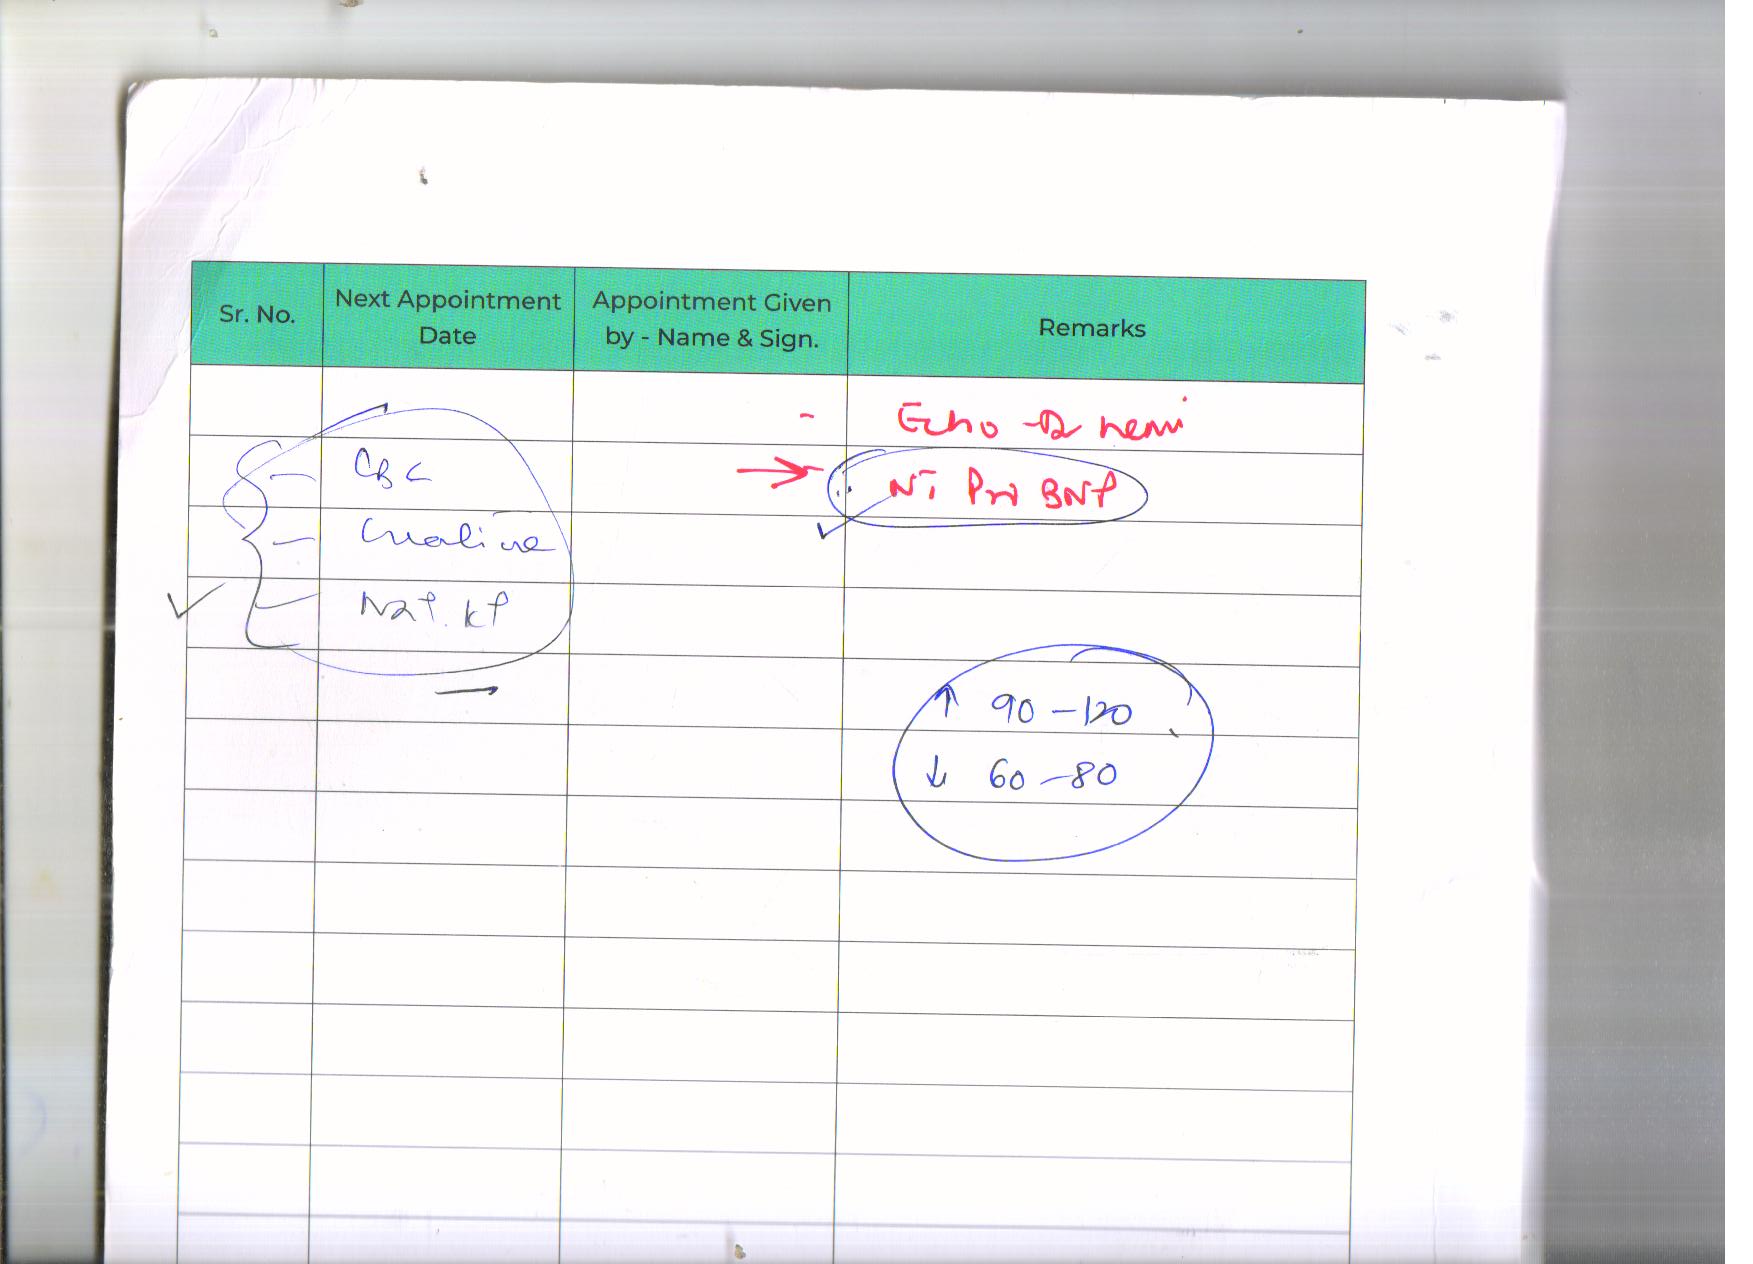 Sr. No. Next Appointment Date Appointment Given by - Name & Sign. Remarks
- Echo
CBC → NT Pro BNP
- Creatinine
- Na+. K+
↑ 90 - 120
↓ 60 - 80